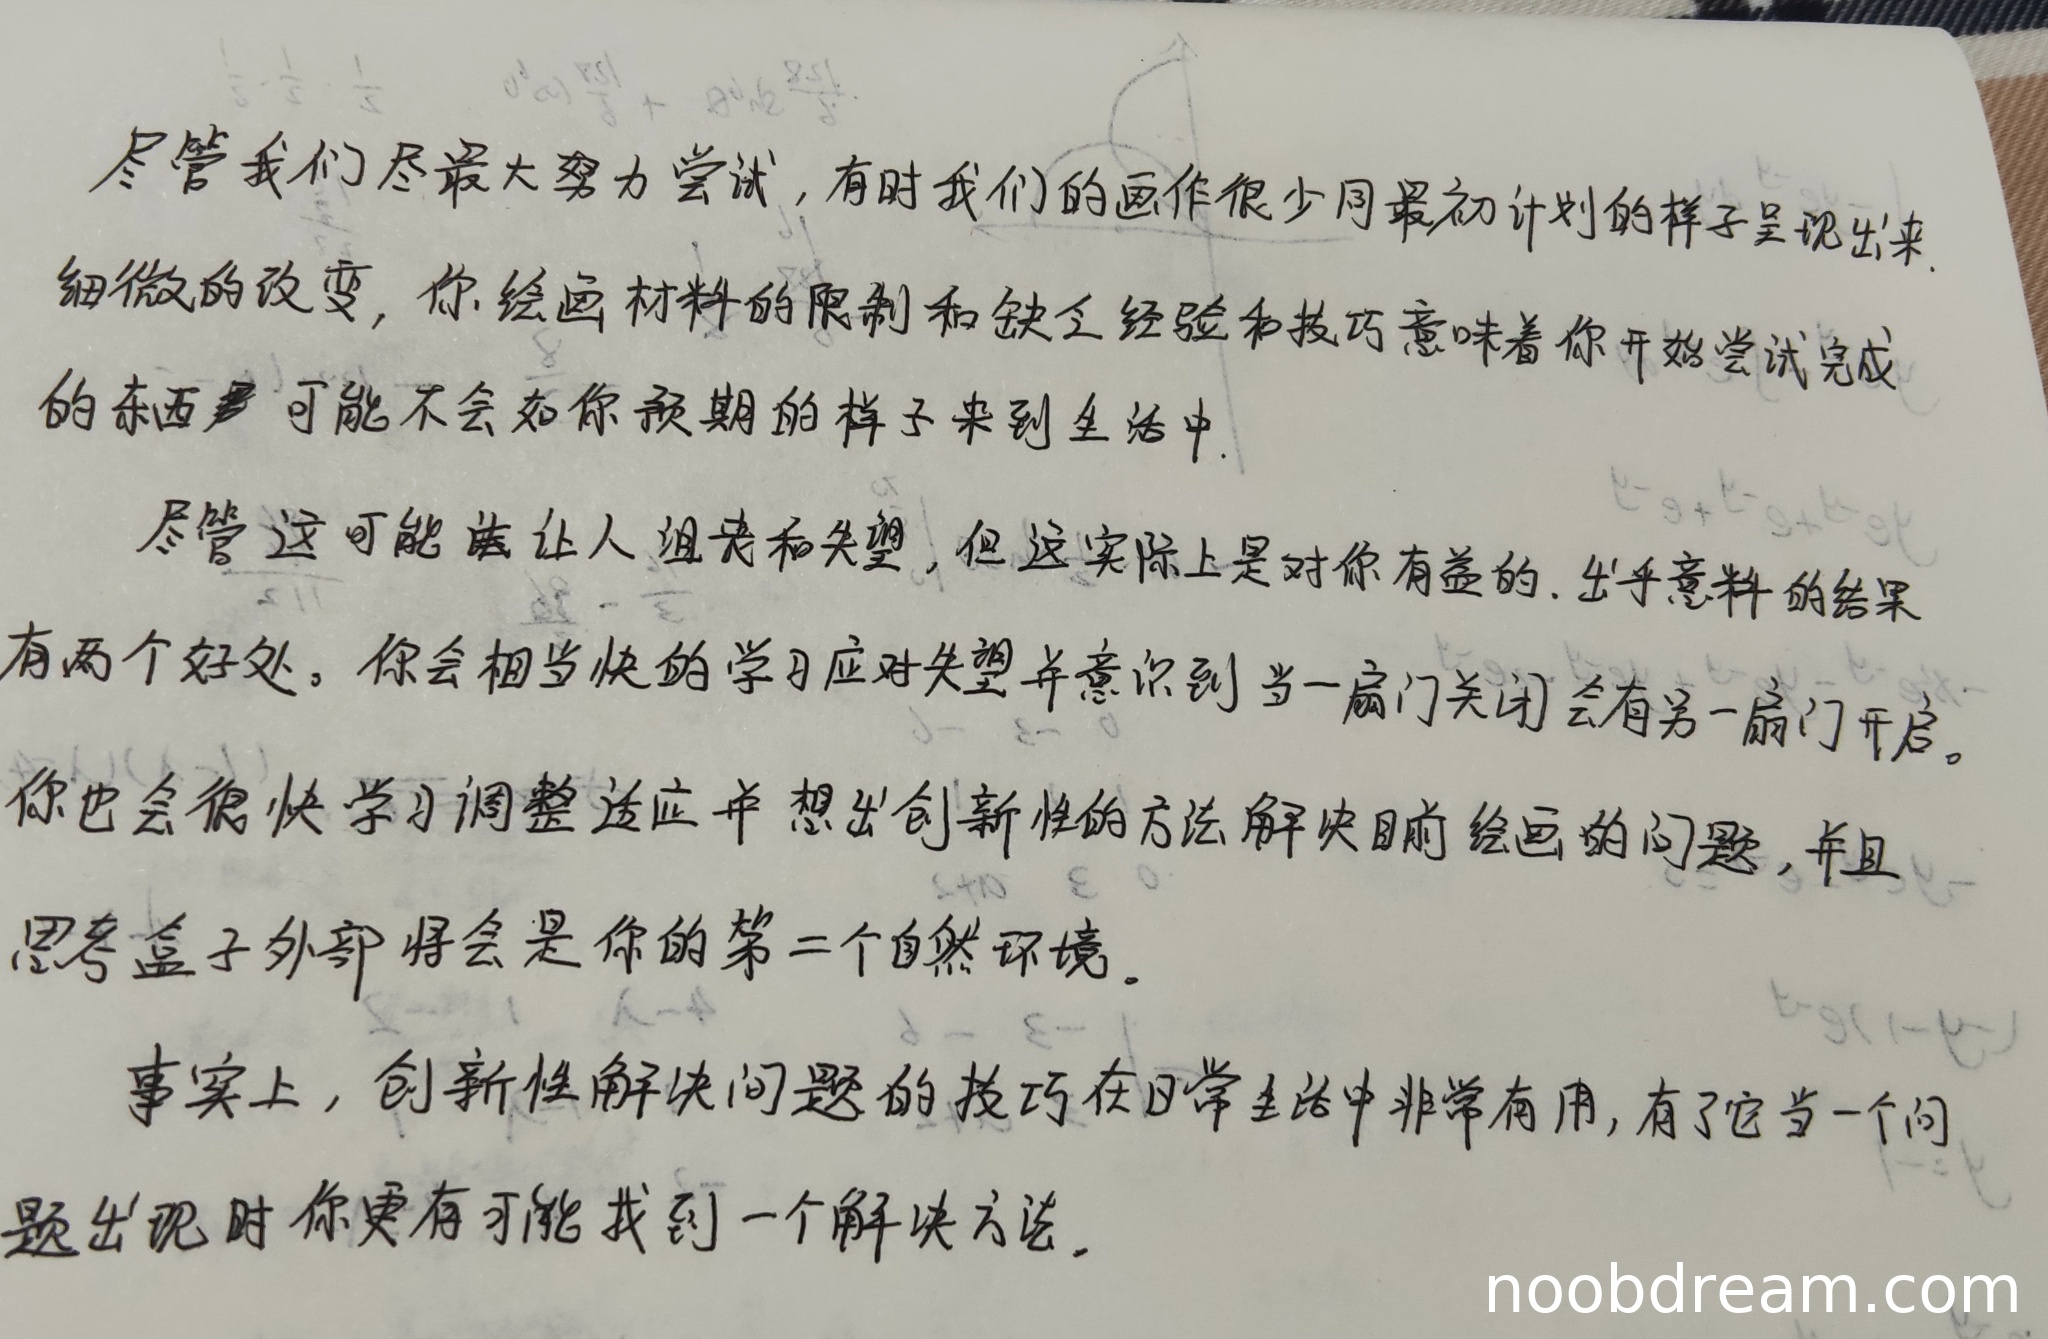 尽管我们尽最大努力尝试,有时我们的画作很少同最初计划的样子呈现出来.
细微的改变,你绘画材料的限制和缺乏经验和技巧意味着你开始尝试完成
的东西 可能不会如你预期的样子来到生活中.
尽管这可能 让人沮丧和失望,但这实际上是对你有益的.出乎意料的结果
有两个好处。你会相当快的学习应对失望并意识到当一扇门关闭会有另一扇门开启。
你也会很快学习调整适应并想出创新性的方法解决目前绘画的问题,并且
思考盒子外部将会是你的第二个自然环境。
事实上,创新性解决问题的技巧在日常生活中非常有用,有了它当一个问
题出现时你更有可能找到一个解决方法。
noobdream.com